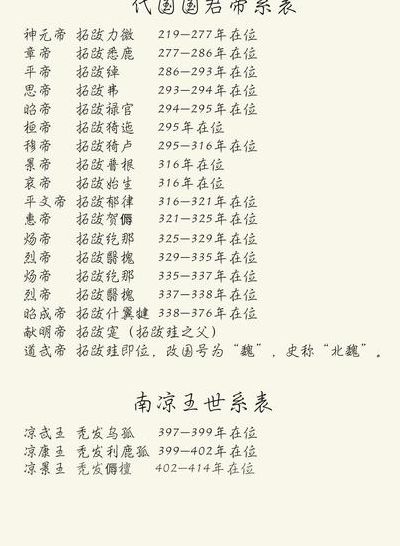 代国国君帝系表
神元帝 拓跋力微 219—277年在位
章帝 拓跋悉鹿 277—286年在位
平帝 拓跋绰 286—293年在位
思帝 拓跋弗 293—294年在位
昭帝 拓跋禄官 294—295年在位
桓帝 拓跋猗迤 295年在位
穆帝 拓跋猗卢 295—316年在位
景帝 拓跋普根 316年在位
哀帝 拓跋始生 316年在位
平文帝 拓跋郁律 316—321年在位
惠帝 拓跋贺傉 321—325年在位
炀帝 拓跋纥那 325—329年在位
烈帝 拓跋翳槐 329—335年在位
炀帝 拓跋纥那 335—337年在位
烈帝 拓跋翳槐 337—338年在位
昭成帝 拓跋什翼犍 338—376年在位
献明帝 拓跋寔（拓跋珪之父）
道武帝 拓跋珪即位，改国号为“魏”，史称“北魏”。
南凉王世系表
凉武王 秃发乌孤 397—399年在位
凉康王 秃发利鹿孤 399—402年在位
凉景王 秃发傉檀 402—414年在位